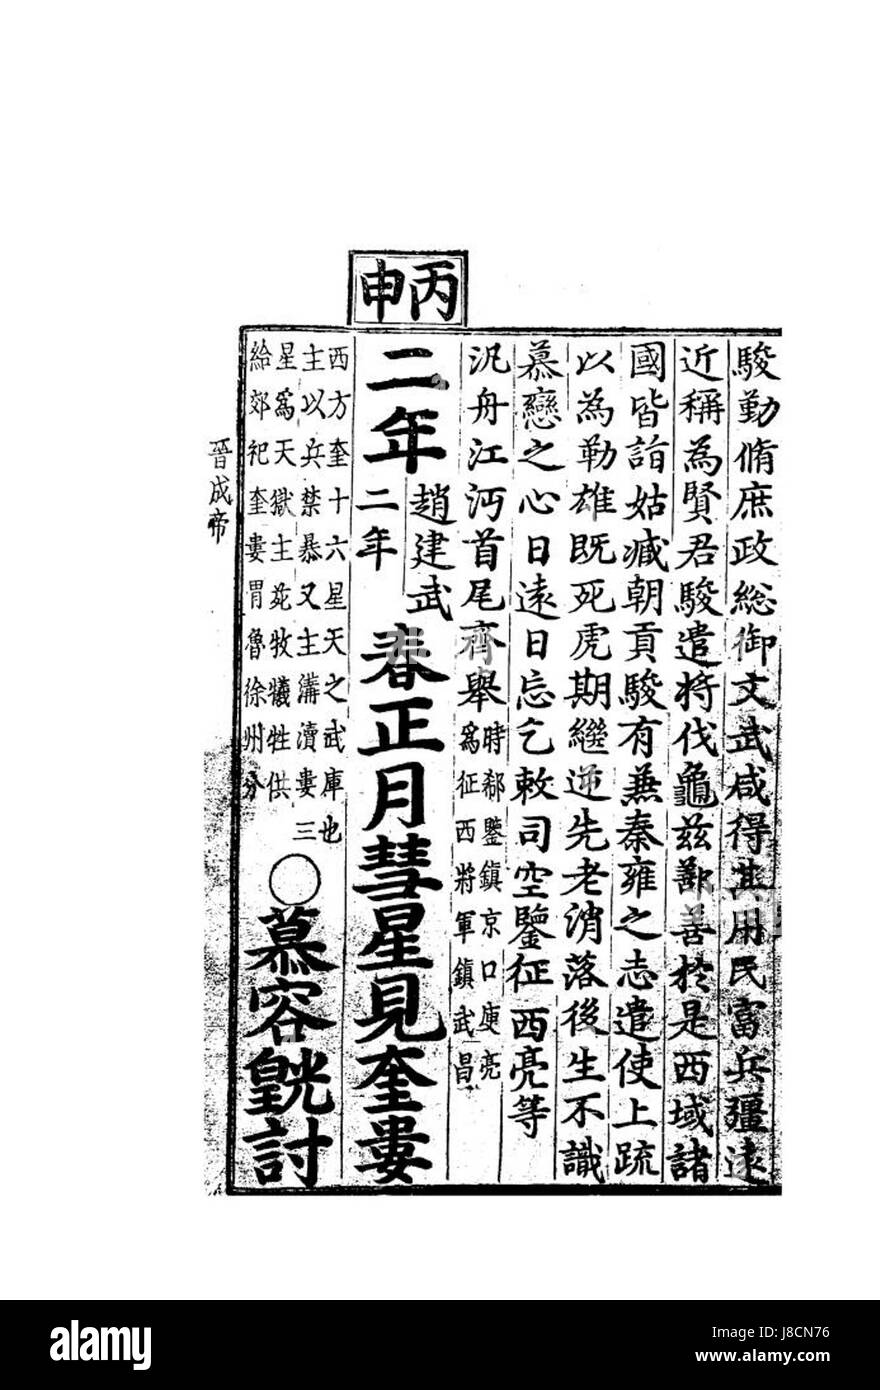 丙申
駿勤脩庶政総御文武咸得其用民富兵疆遠
近稱為賢君駿遣将伐龜茲鄯善於是西域諸
國皆詣姑臧朝貢駿有兼秦雍之志遣使上疏
以為勒雄既死虎期繼逆先老消落後生不識
慕戀之心日遠日忘乞敕司空鑒征西亮等
汎舟江沔首尾齊舉
時郗鑒鎮京口庾亮
為征西將軍鎮武昌
二年
趙建武
二年
春正月彗星見奎婁
西方奎十六星天之武庫也
主以兵禁暴又主溝瀆婁三
星為天獄主苑牧犧牲供
給郊祀奎婁胃魯徐州分
○慕容皝討
晉成帝
alamy
Image ID: J8CN76
www.alamy.com